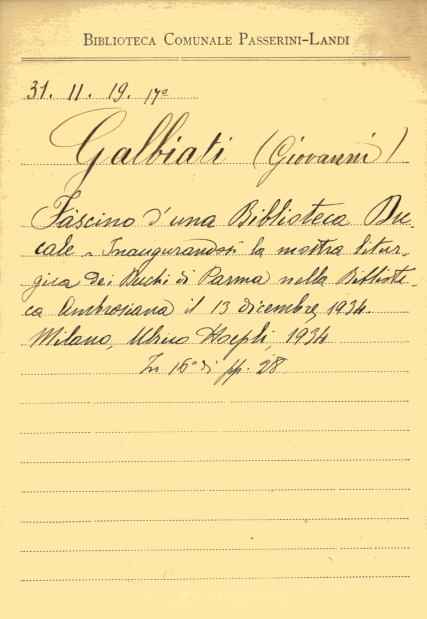 BIBLIOTECA COMUNALE PASSERINI-LANDI
31. 11. 19. 17°
Galbiati (Giovanni)
Fascino d'una Biblioteca Du-
cale ~ Inaugurandosi la mostra litur-
gica dei Duchi di Parma nella Bibliote-
ca Ambrosiana il 13 dicembre 1934.
Milano, Ulrico Hoepli, 1934
In 16° di pp. 28